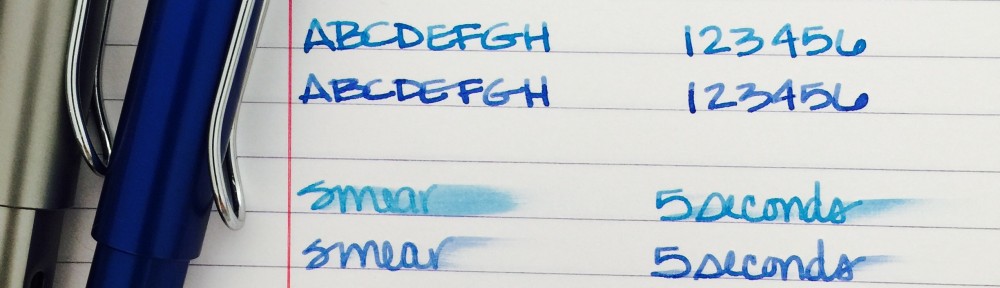 ABCDEFGH 123456
ABCDEFGH 123456
smear 5 seconds
smear 5 seconds